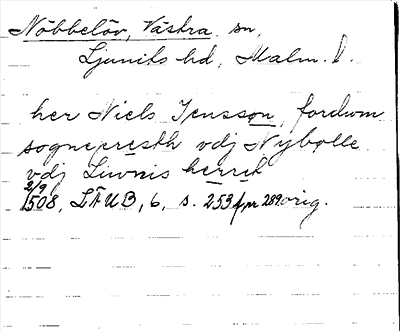 Nöbbelöv, Västra sn,
Ljunits hd, Malm. l.
her Niels Jensson, fordwm
sognepresth vdj Nybølle
vdj Liwnis herret
2/9
1508, LÄUB, 6, s. 253 fr 289 orig.